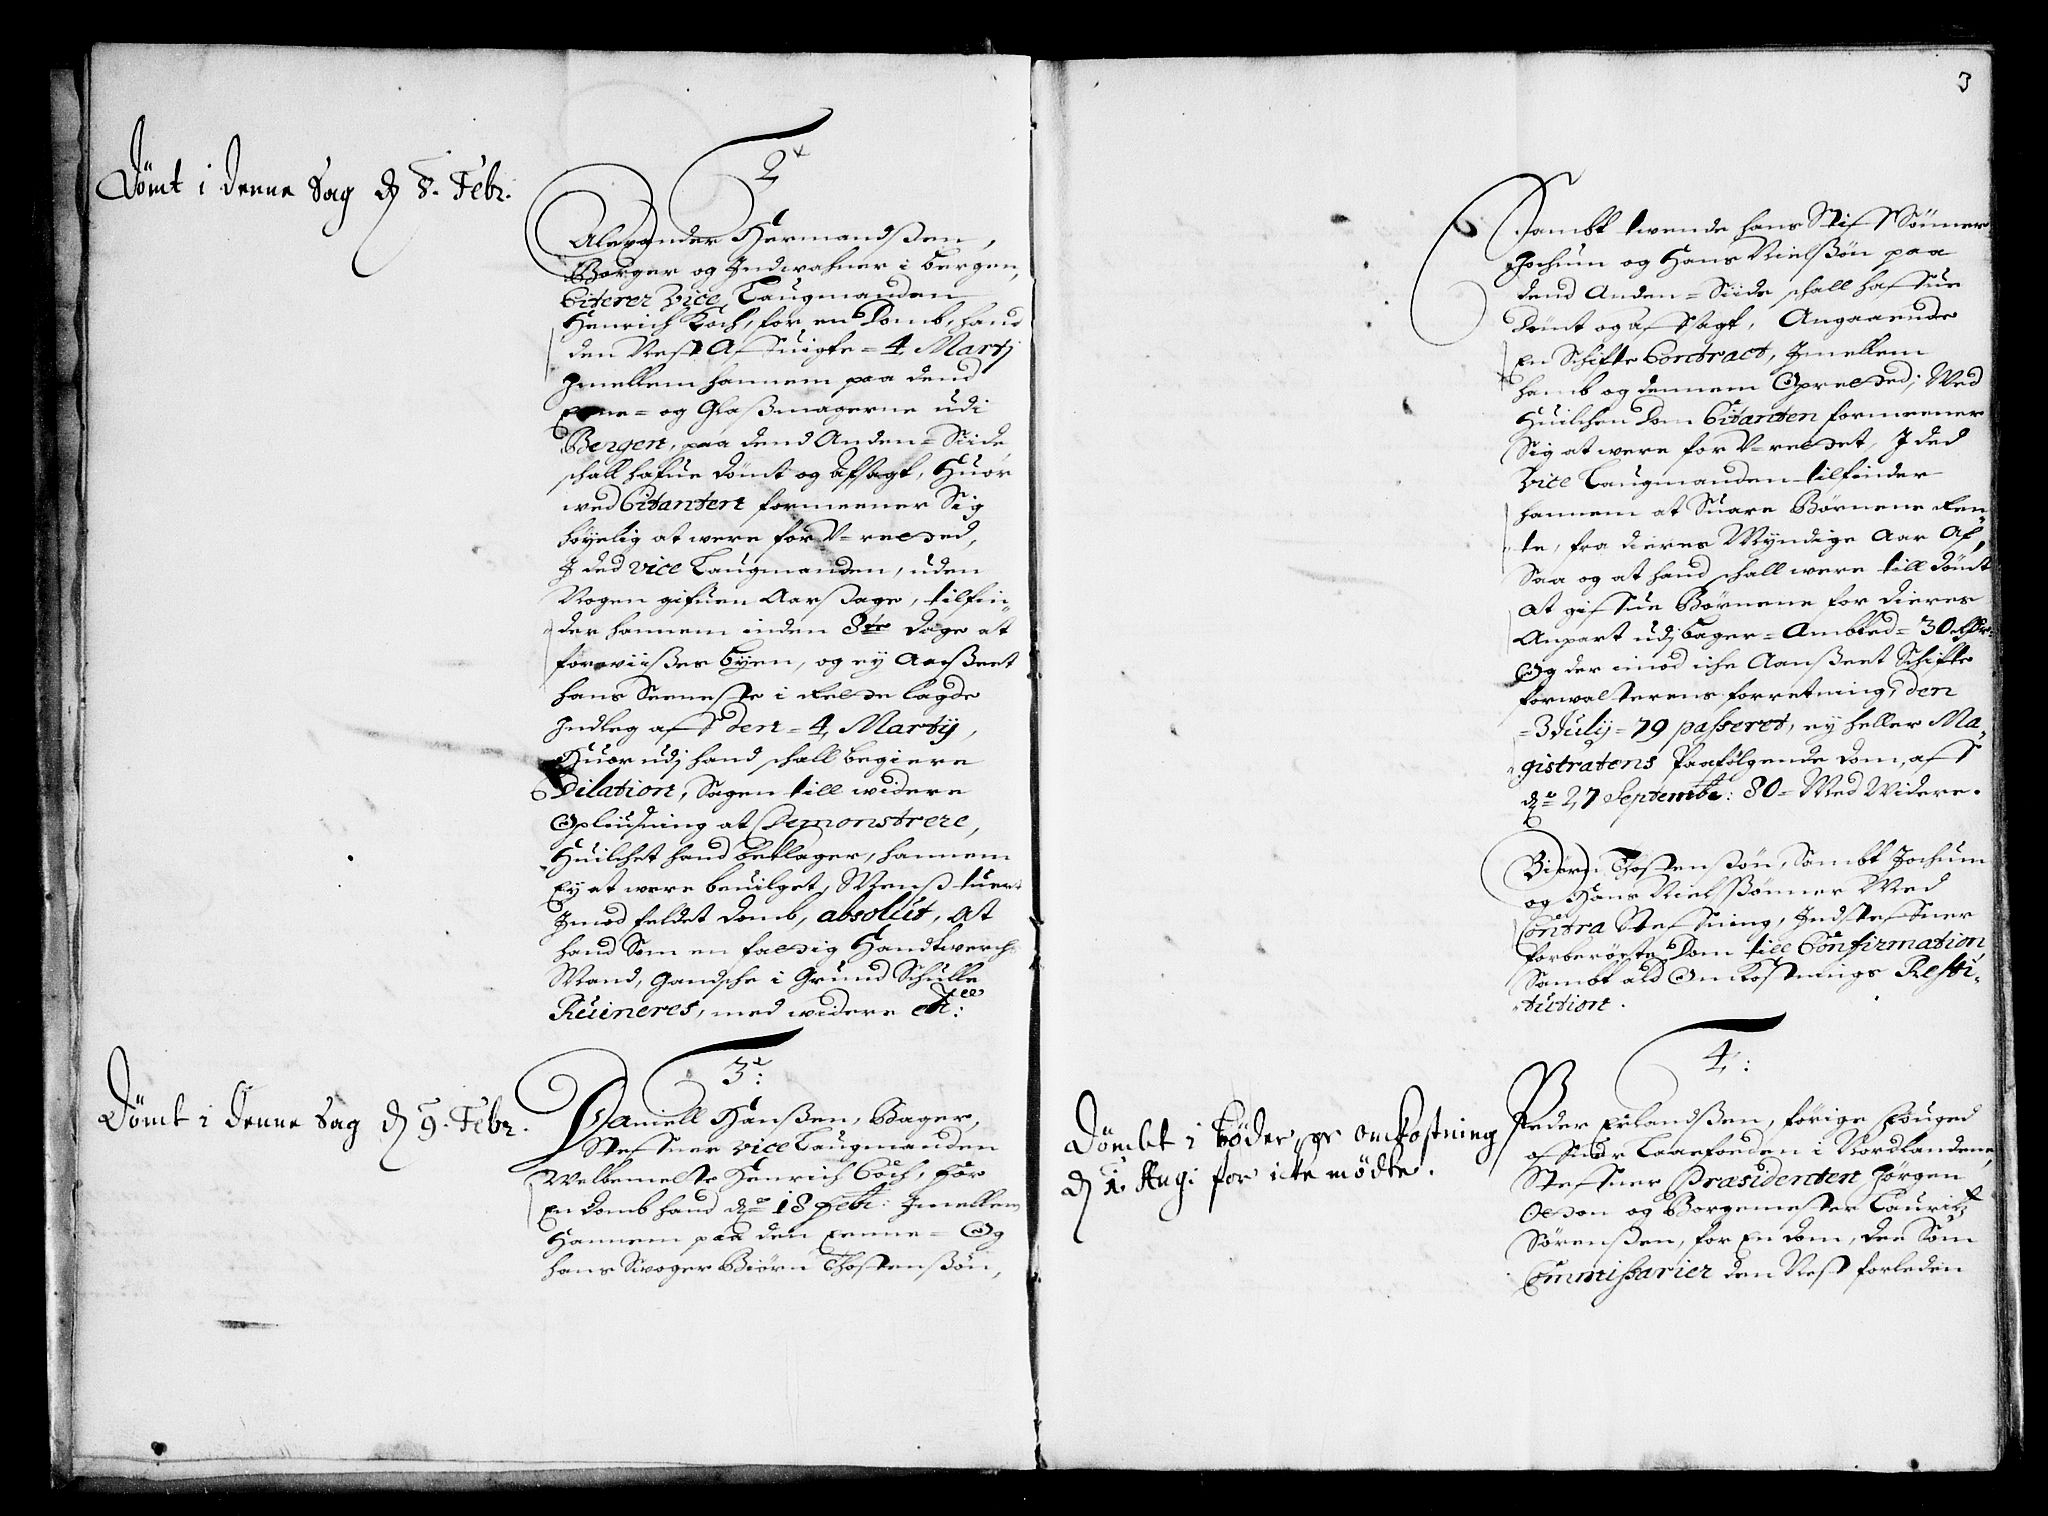 Dömt i denne Sag dn 8. Febr.
2
Alexander Hermandßen,
Borger og Indvahner i bergen,
Citerer Vice Laugmanden
Henrich Koch, for en Domb, hand
den Nest Afvigte = 4 Martij
Imellem hannem paa dend
eene = og Glaßmagerne udi
Bergen, paa dend Anden = Siide
schall hafue dömt og afsagt, Huor
ved Citanten formeener Sig
höyelig at were forV-retted,
I ded vice Laugmanden, uden
Nogen gifuen Aarsage, tilfin
der hannem inden 8te Dage at
forviißes byen, og ey Anßeet
hans Seeneste i Rette lagde
Indleg aff den = 4 Martij,
Huor udj hand schall begiere
Dilation, Sagen till widere
Opliusning at Demonstrere,
Huilchet hand beklager, hannem
Ey at were beuilget, Menß tuert
Imod feldet Domb, absolut, At
hand Som en fattig Handtwerchs
Mand, Gandsche i Grund Schulle
Ruineres, med widere etc:
3:
Dömt i denne Sag dn 9. Febr.
Daniell Hanßen, Bager,
Steffner vice Laugmanden
Welbemelte Henrich Coch, for
En domb hand dn 18 Febr: Imellem
Hannem paa den Eenne = Og
hans Svoger Biörn Thostensßön,
3
Sambt twende hans Stiff Sönner
Jochum og Hans Nielßön paa
dend Anden = Siide schall haffue
dömt og aff Sagt, Angaaende
En Schifte Contract, Imellem
hamb og dennem Opretted; Med
Huilchen Dom Citanten formeener
Sig at were for V-rettet, I ded
Vice Laugmanden tilfinder
hannem at Suare Börnene Ren
te, fra dieres Myndige Aar Af,
Saa og at hand schall were till dömt
At giffue Börnene for dieres
Anpart udj bager = Ambted = 30 Rdr:
Og der imod iche Aanßeet Schifte
forwalterens forretning, den
= 3 Julij = 79 passeret, ey heller Ma
gistratens Paafölgende Dom, aff
dn 27 Septembr: 80 = Med Widere.
Biörn Thostensßön, Sambt Jochum
og Hans Nielßönner Med
Contra Steffning, Indsteffner
forberörte Dom till Confirmation
Sambt ald Omkostnings Resti
tution.
4:
Dömbt i böder og omkostning
dn 1. Aug: for icke mödte.
Peder Erlandßen, forige Fouged
offuer Laaefoeden i Nordlandene,
Steffner Præsidenten Jörgen
Ottson og Borgemester Lauritz
Sörenßen, for En dom, dee Som
Commissarier den Nest forleden